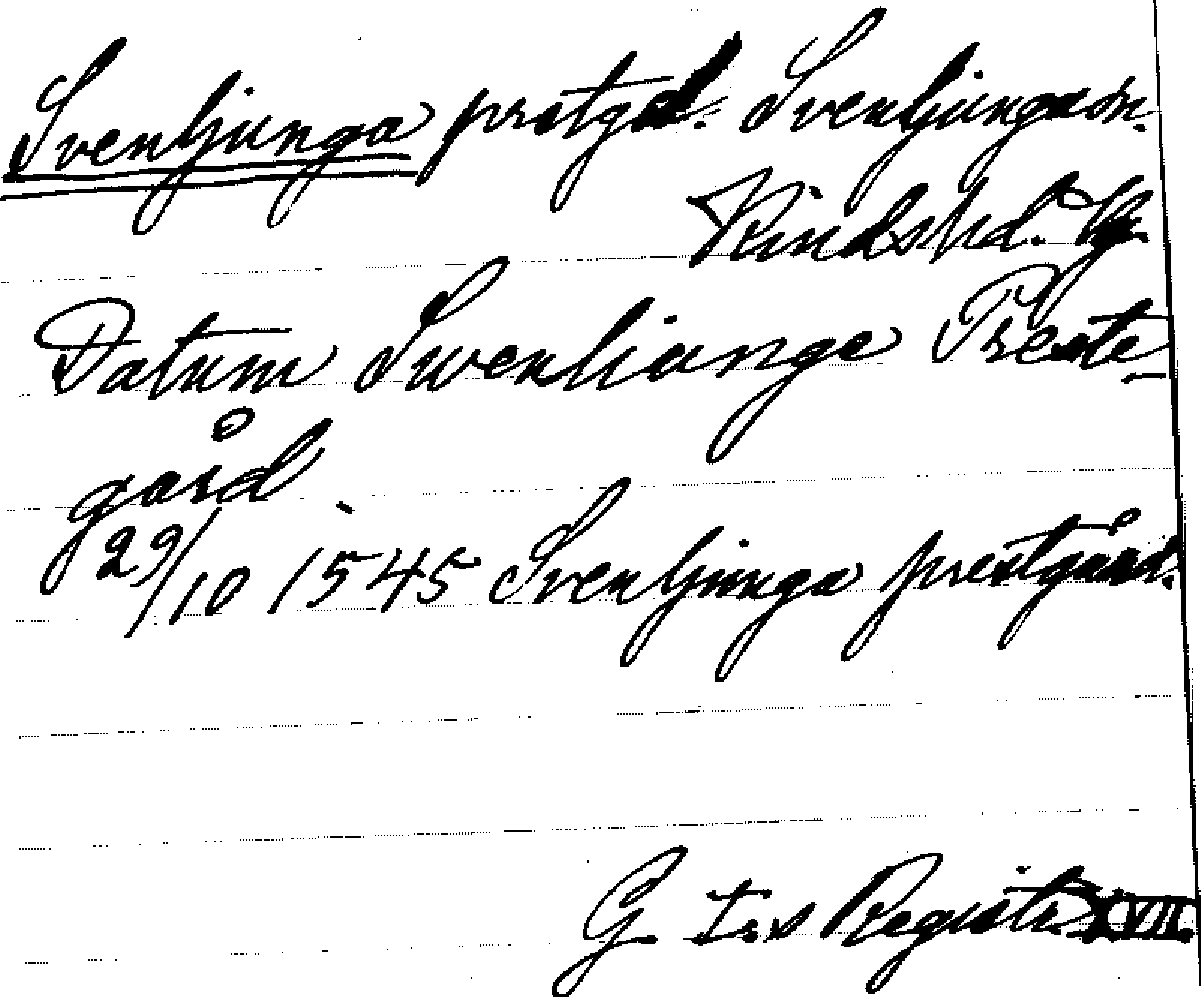 Svenljunga prstgd. Svenljunga sn.
Kinds hd. Vg.
Datum Swenliange Preste-
gård
29/10 1545 Svenljunga prestgård.
G. I:s Registr. XVII.